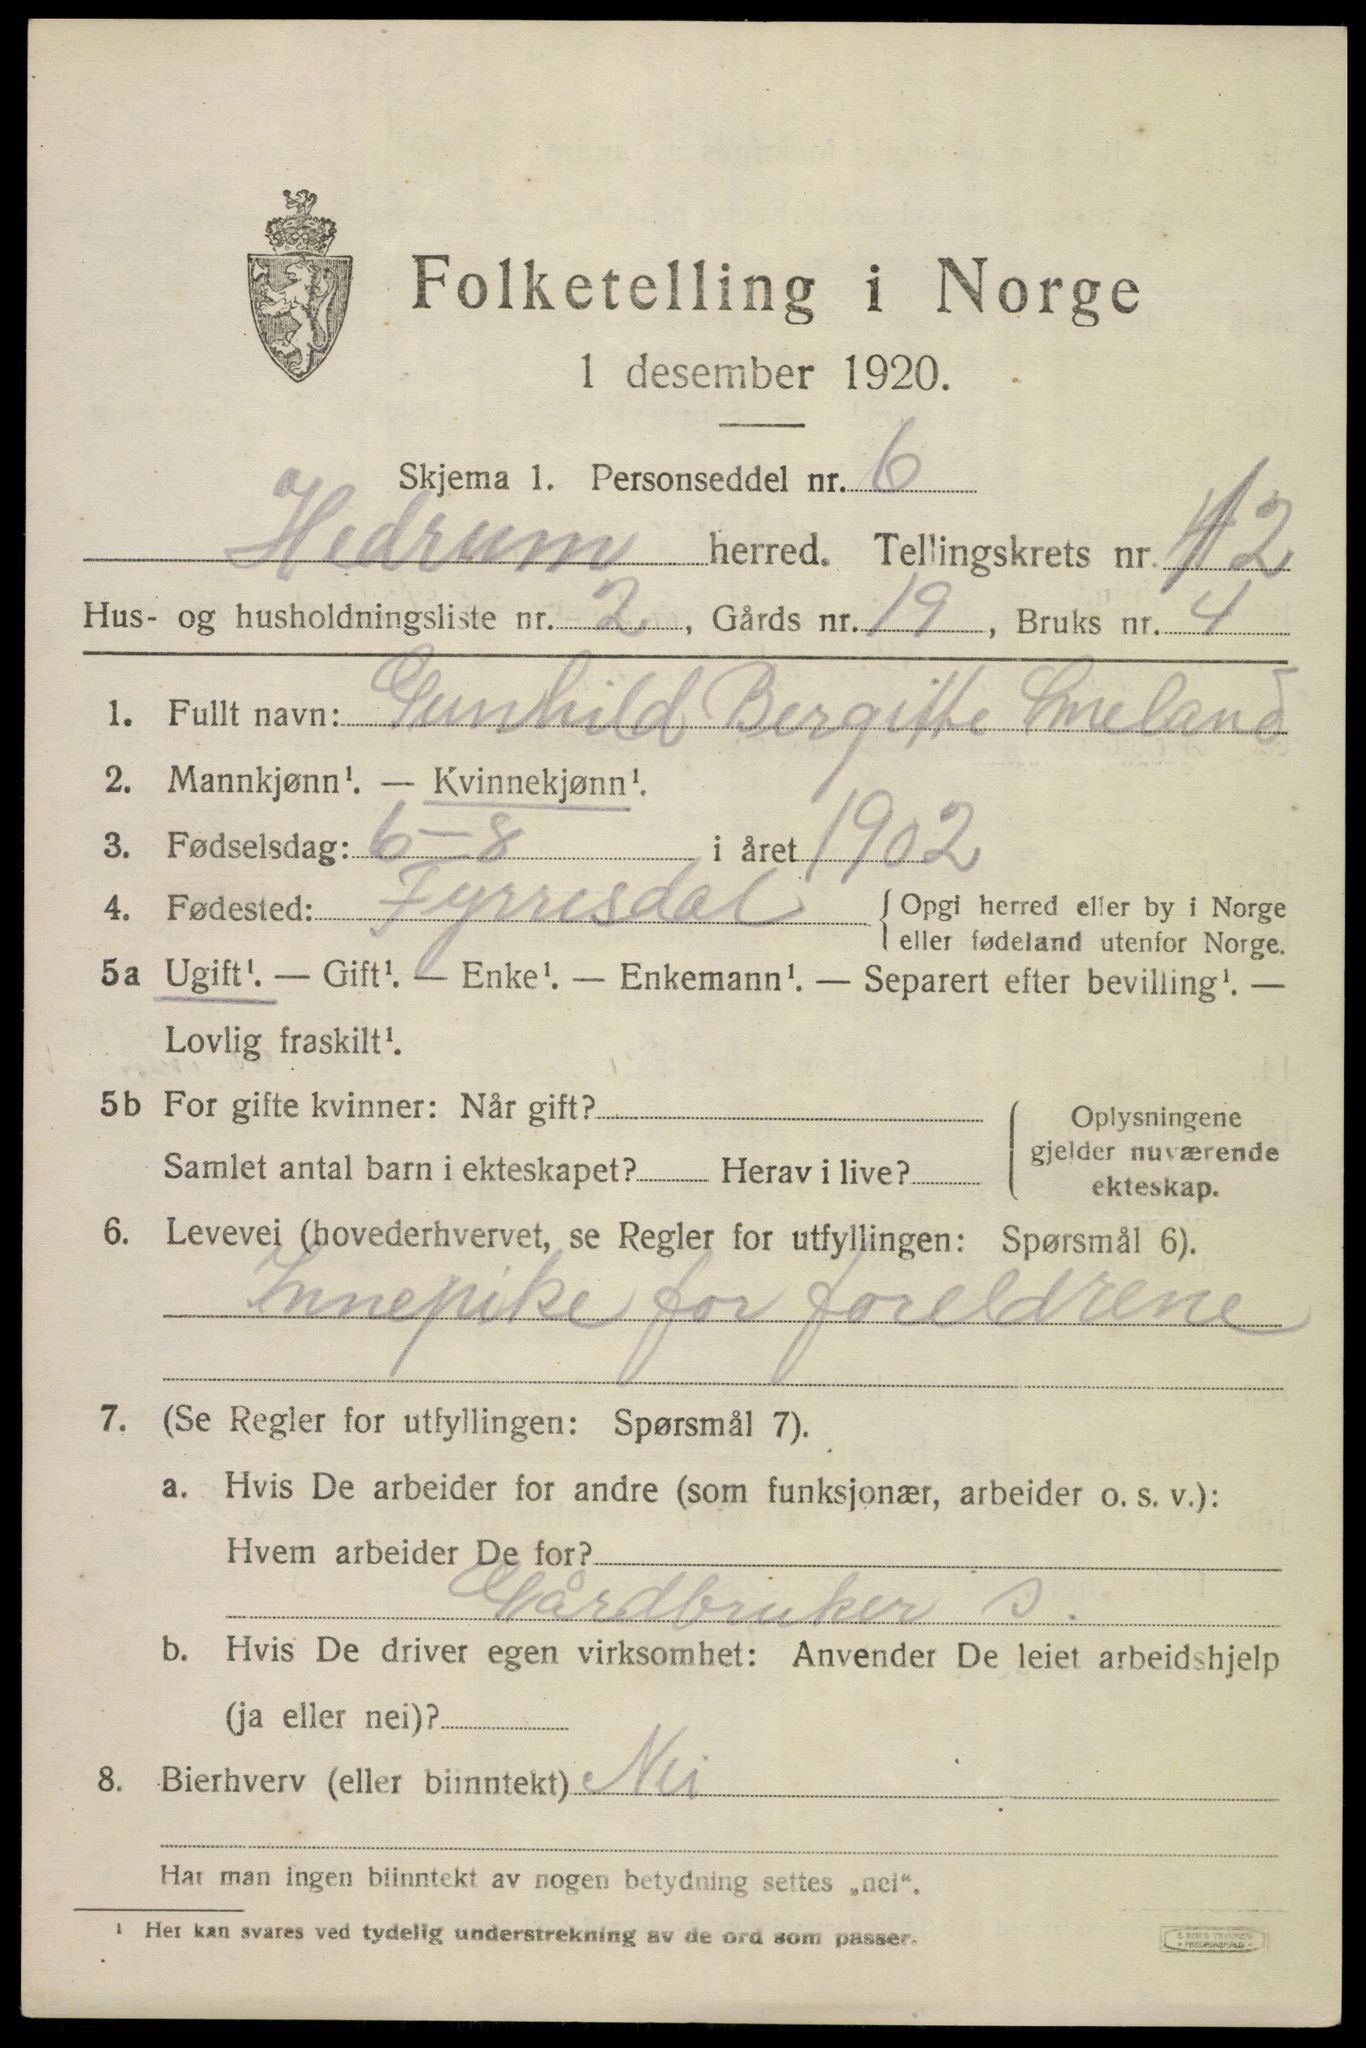 Folketelling i Norge
1 desember 1920.
Skjema 1. Personseddel nr. 6
Hedrum herred. Tellingskrets nr. 12
Hus- og husholdningsliste nr. 2, Gårds nr. 19, Bruks nr. 4
1. Fullt navn: Gunhild Bergitte Smeland
2. Mannkjønn¹. — Kvinnekjønn¹.
3. Fødselsdag: 6-8 i året 1902
4. Fødested: Fyrresdal { Opgi herred eller by i Norge
eller fødeland utenfor Norge.
5a Ugift¹. — Gift¹. — Enke¹. — Enkemann¹. — Separert efter bevilling¹. —
Lovlig fraskilt¹.
5b For gifte kvinner: Når gift?
Samlet antal barn i ekteskapet? Herav i live?
Oplysningene
gjelder nuværende
ekteskap.
6. Levevei (hovederhvervet, se Regler for utfyllingen: Spørsmål 6).
Innepike for foreldrene
7. (Se Regler for utfyllingen: Spørsmål 7).
a. Hvis De arbeider for andre (som funksjonær, arbeider o. s. v.):
Hvem arbeider De for?
Gårdbruker S.
b. Hvis De driver egen virksomhet: Anvender De leiet arbeidshjelp
(ja eller nei)?
8. Bierhverv (eller biinntekt) Nei
Har man ingen biinntekt av nogen betydning settes „nei“.
¹ Her kan svares ved tydelig understrekning av de ord som passer.